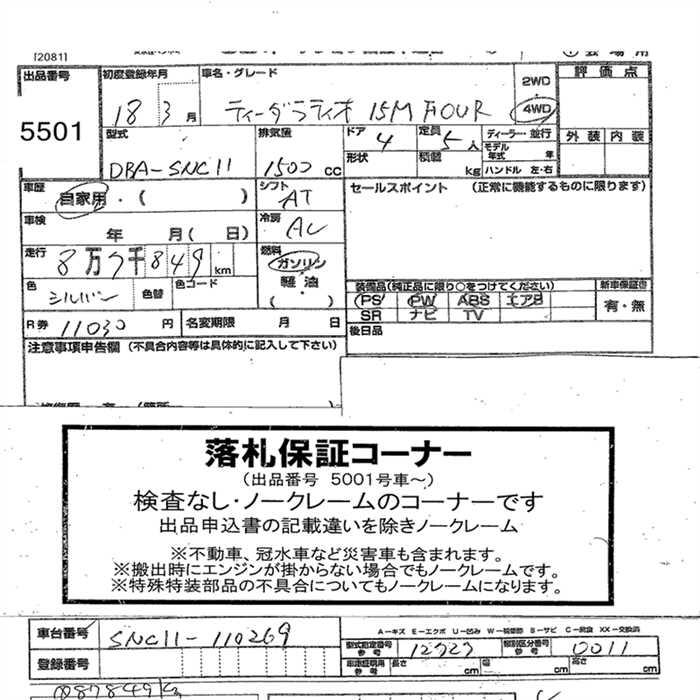 [2081]
出品番号 初度登録年月 車名・グレード 2WD 評価点
18 3 月 ティーダラティオ 15M FOUR 4WD
5501
型式 排気量 ドア 4 定員 5 人 ディーラー・並行 外装 内装
DBA-SNC11 1500 cc 形状 積載 kg モデル年式 年 ハンドル 左・右
車歴 自家用・( ) シフト AT セールスポイント (正常に機能するものに限ります)
車検 年 月( 日) 冷房 AC
走行 8万7千849 km 燃料 ガソリン
軽油
( )
色 シルバー 色替 色コード 装備品(純正品に限り○をつけてください) 新車保証書
PS PW ABS エアB 有・無
R券 11030 円 名変期限 月 日 SR ナビ TV
後日品
注意事項申告欄 (不具合内容等は具体的に記入して下さい)
落札保証コーナー
(出品番号 5001号車~)
検査なし・ノークレームのコーナーです
出品申込書の記載違いを除きノークレーム
※不動車、冠水車など災害車も含まれます。
※搬出時にエンジンが掛からない場合でもノークレームです。
※特殊特装部品の不具合についてもノークレームになります。
車台番号 SNC11-110269 A-キズ E-エクボ U-凹み W-補修跡 B-サビ C-腐食 XX-交換済
型式指定番号 参考 12723 類別区分番号 参考 0011
登録番号 車庫証明用 参考 長さ cm 幅 cm 高さ cm
087849